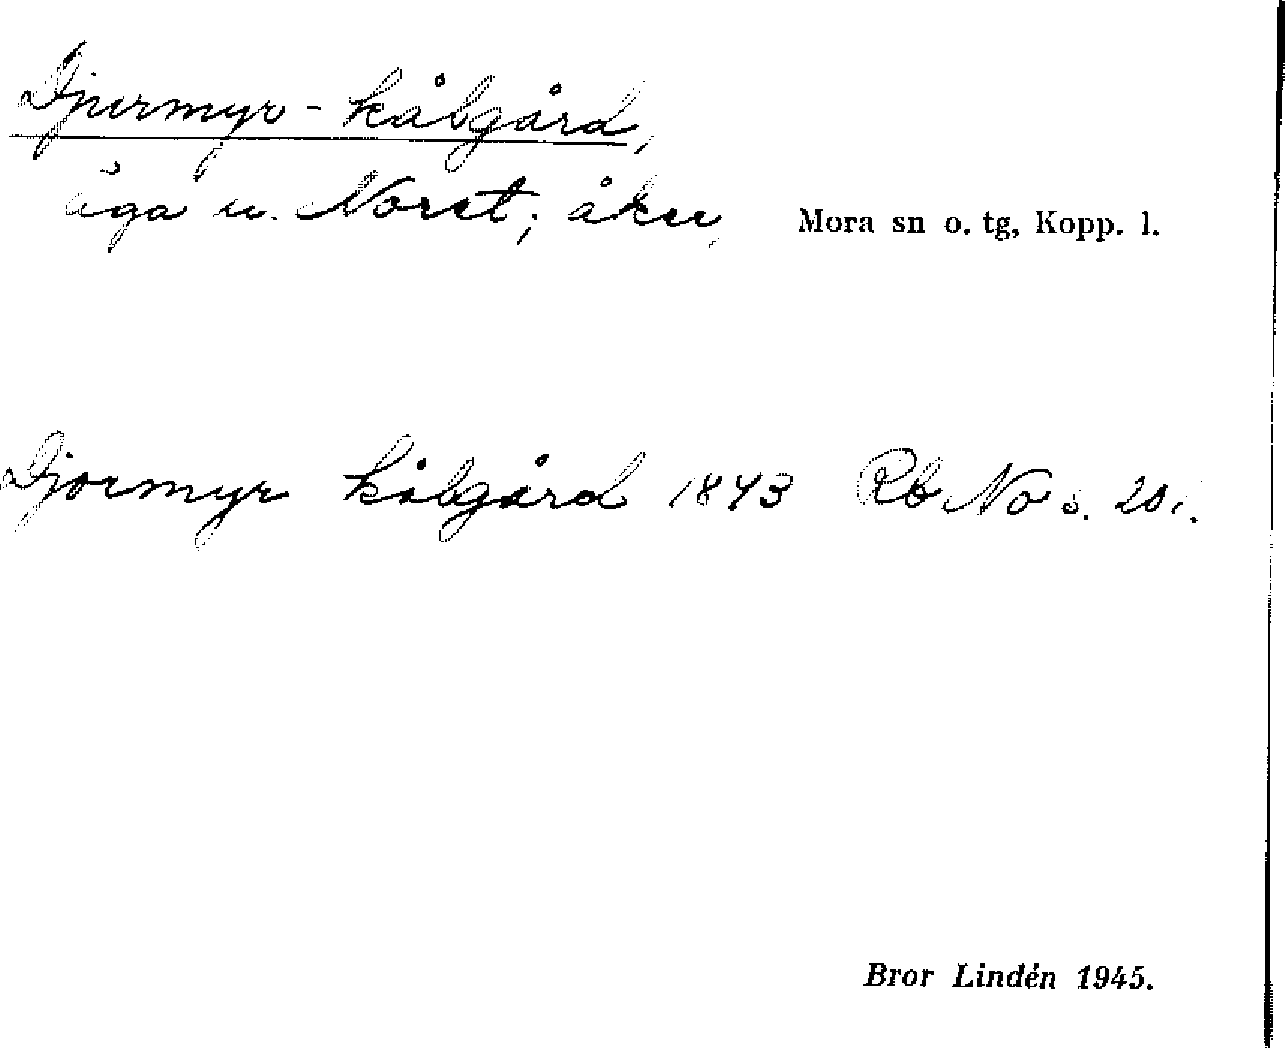 Djurmyr-kålgård,
äga u. Noret; åker, Mora sn o. tg, Kopp. l.
Djormyr kålgård 1843 Rb No s. 201.
Bror Lindén 1945.